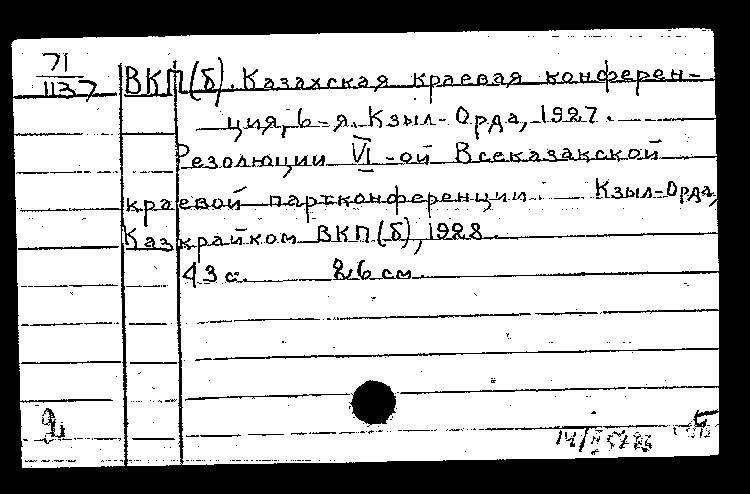 71
1137
ВКП(б). Казахская краевая конферен-
ция, 6-я. Кзыл-Орда, 1927.
Резолюции VI-ой Всеказакской
краевой партконференции. Кзыл-Орда,
Казкрайком ВКП(б), 1928.
43 с. 26 см.